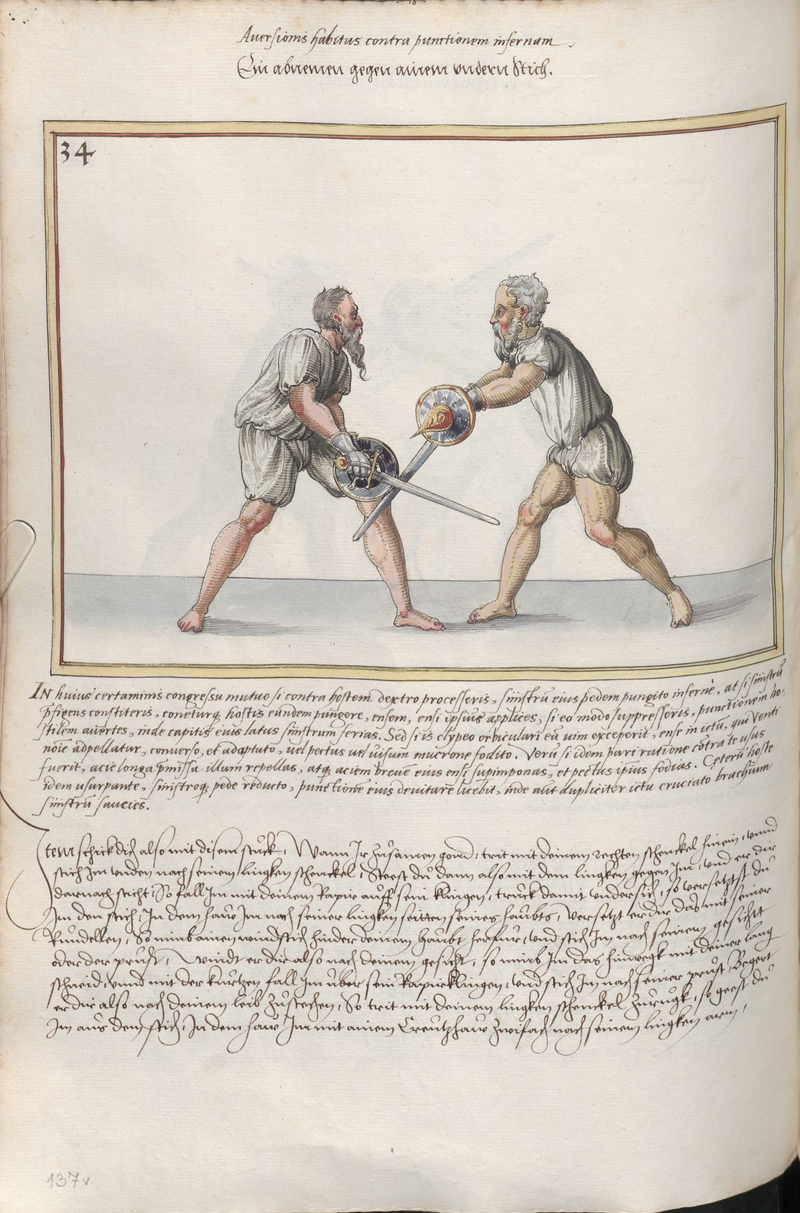 Aversionis habitus contra punctionem infernam.
Ein abnemen gegen ainem undern Stich.
34
IN huius certaminis congressu mutuo si contra hostem dextro processeris, sinistrũ eius pedem pungito infernè, at si sinistrũ
p̃figens constiteris, coneturq̃ hostis eundem pungere, ensem, ensi ipsius applices, si eo modo suppresseris, punctionem ho-
stilem auertes, inde capitis eius latus sinistrum ferias. Sed si is clypeo orbiculari eã uim exceperit, ense in ictũ, qui Venti
noie adpellatur, conuerso, et adaptato, uel pectus uel uisum mucrone fodito. Verũ si idem pari ratione cõtra te usus
fuerit, acie longa p̃missa illum repellas, atq̃ aciem breuẽ eius ensi supimponas, et pectus ipsius fodias. Ceterũ hoste
idem usurpante, sinistroq̃ pede reducto, punctionẽ eius deuitare licebit, inde aut dupliciter ictu cruciato brachium
sinistrũ saucies.
Item schick dich also mit disem stuck, Wann Ir zusamen gond, trit mit deinem rechten schenckel hinein, unnd
stich Im unden nach seinem lingken schenckel, Steest du dann also mit dem lingken gegen Im, und er dir
darnach sticht, So fall Im mit deinem Rapir auff sein klingen, truck damit undersich, so versetzst du
Im den stich, In dem haw Im nach seiner lingken seitten seines haubts, versetzt er dir das mit seiner
Rundellen, So nimb ainen windstich hinder deinem haubt herfur, und stich Im nach seinem gesicht
oder der prust, Windt er dir also nach deinem gesicht, so nimb Im das hinwegk mit deiner lang
schneid, unnd mit der kurtzen fall Im uber sein Rapir klingen, und stich Im nach seiner prust, Begert
er dir also nach deinem leib zustechen, So trit mit deinem lingken schenckel zurugk, so geest du
Im aus dem stich, In dem haw Im mit ainem Creutzhaw zwifach nach seinem lingken arm,
137v